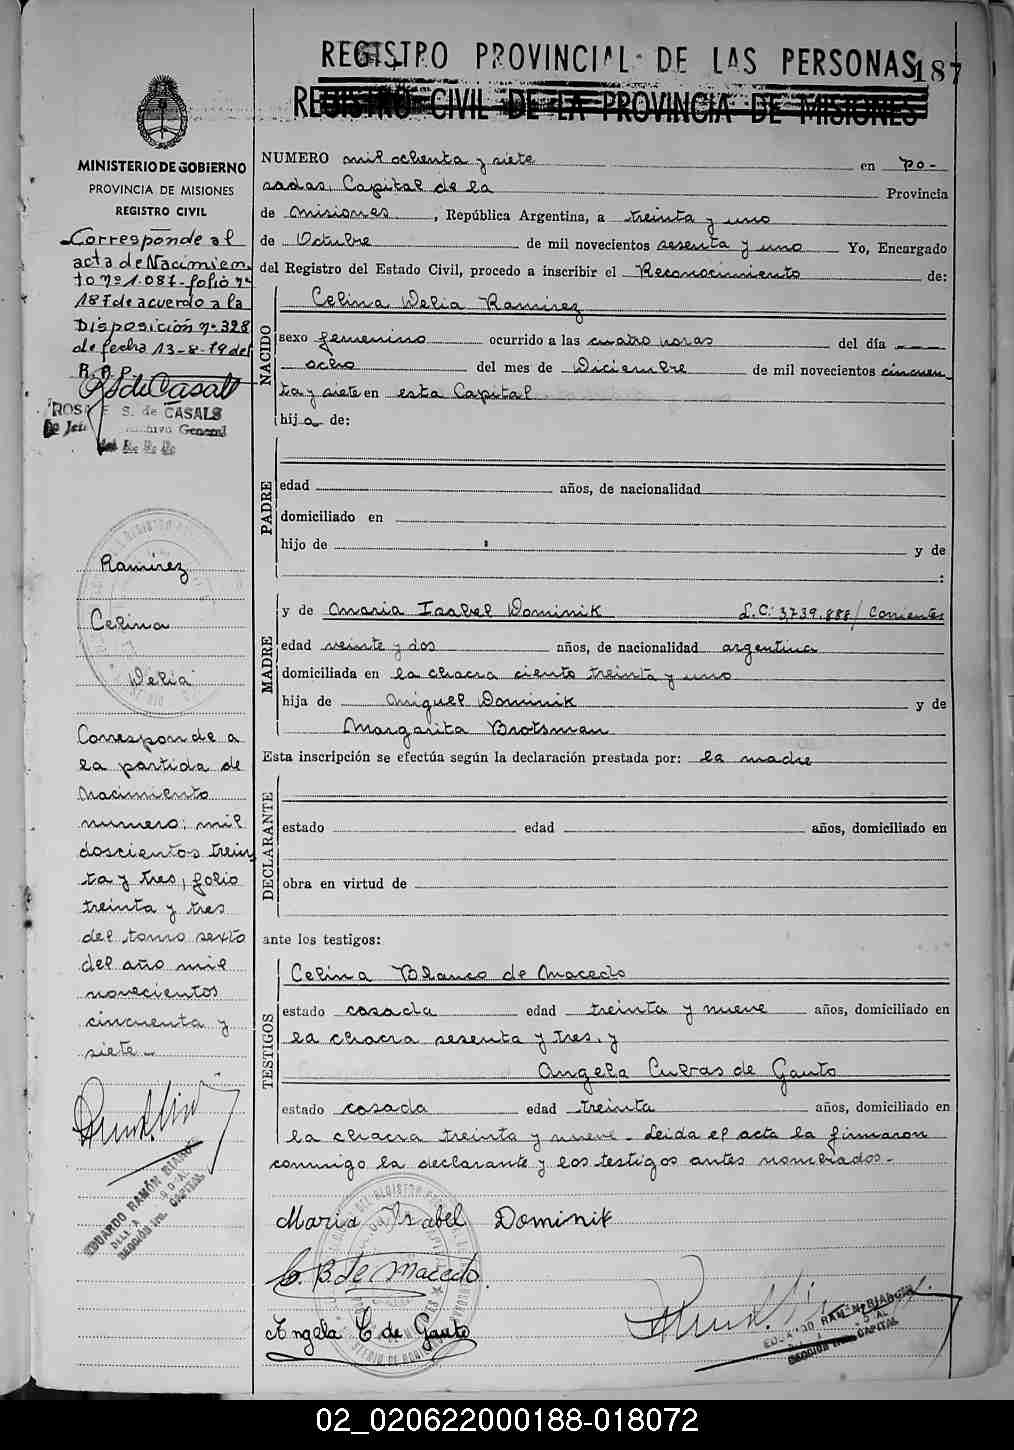 REGISTRO PROVINCIAL DE LAS PERSONAS
187
REGISTRO CIVIL DE LA PROVINCIA DE MISIONES
MINISTERIO DE GOBIERNO
PROVINCIA DE MISIONES
REGISTRO CIVIL
Corresponde al
acta de Nacimien
to nº 1.087 - folio nº
187 de acuerdo a la
Disposición nº 328
de fecha 13-8-79 del
R.D.P.
RS de Casals
ROSA E. S. de CASALS
Archivo General
Ramirez
Celina
Delia
Corresponde a
la partida de
Nacimiento
numero: mil
doscientos trein
ta y tres, folio
treinta y tres
del tomo sexto
del año mil
novecientos
cincuenta y
siete.-
EDUARDO RAMÓN BIANCHI
CAPITAL
NUMERO mil ochenta y siete en Po-
sadas, Capital de la Provincia
de Misiones, República Argentina, a treinta y uno
de Octubre de mil novecientos sesenta y uno Yo, Encargado
del Registro del Estado Civil, procedo a inscribir el Reconocimiento de:
NACIDO
Celina Delia Ramirez
sexo femenino ocurrido a las cuatro horas del día
ocho del mes de Diciembre de mil novecientos cincuen-
ta y siete en esta Capital
hija de:
PADRE
edad años, de nacionalidad
domiciliado en
hijo de y de
:
MADRE
y de Maria Isabel Dominik L.C: 3,739.888/ Corrientes
edad veinte y dos años, de nacionalidad argentina
domiciliada en la chacra ciento treinta y uno
hija de Miguel Dominik y de
Margarita Brotsman
Esta inscripción se efectúa según la declaración prestada por: la madre
DECLARANTE
estado edad años, domiciliado en
obra en virtud de
ante los testigos:
TESTIGOS
Celina Blanco de Macedo
estado casada edad treinta y nueve años, domiciliado en
la chacra sesenta y tres, y
Angela Cuevas de Gauto
estado casada edad treinta años, domiciliado en
la chacra treinta y nueve. Leida el acta la firmaron
conmigo la declarante y los testigos antes nombrados.-
Maria Isabel Dominik
C. B. de Macedo.
Angela C de Gauto
CAPITAL
02_020622000188-018072